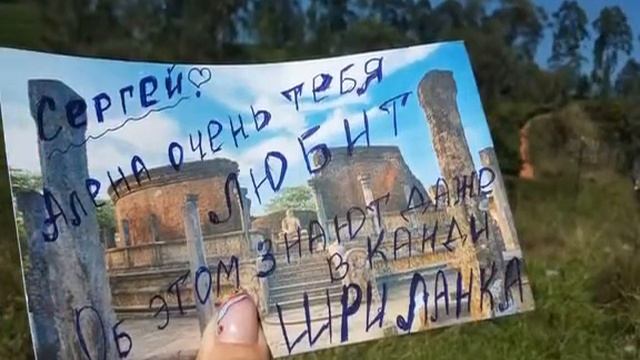 Сергей!♡
Алена очень тебя
ЛЮБИТ
Об этом знают даже
в Канди
ШРИ ЛАНКА